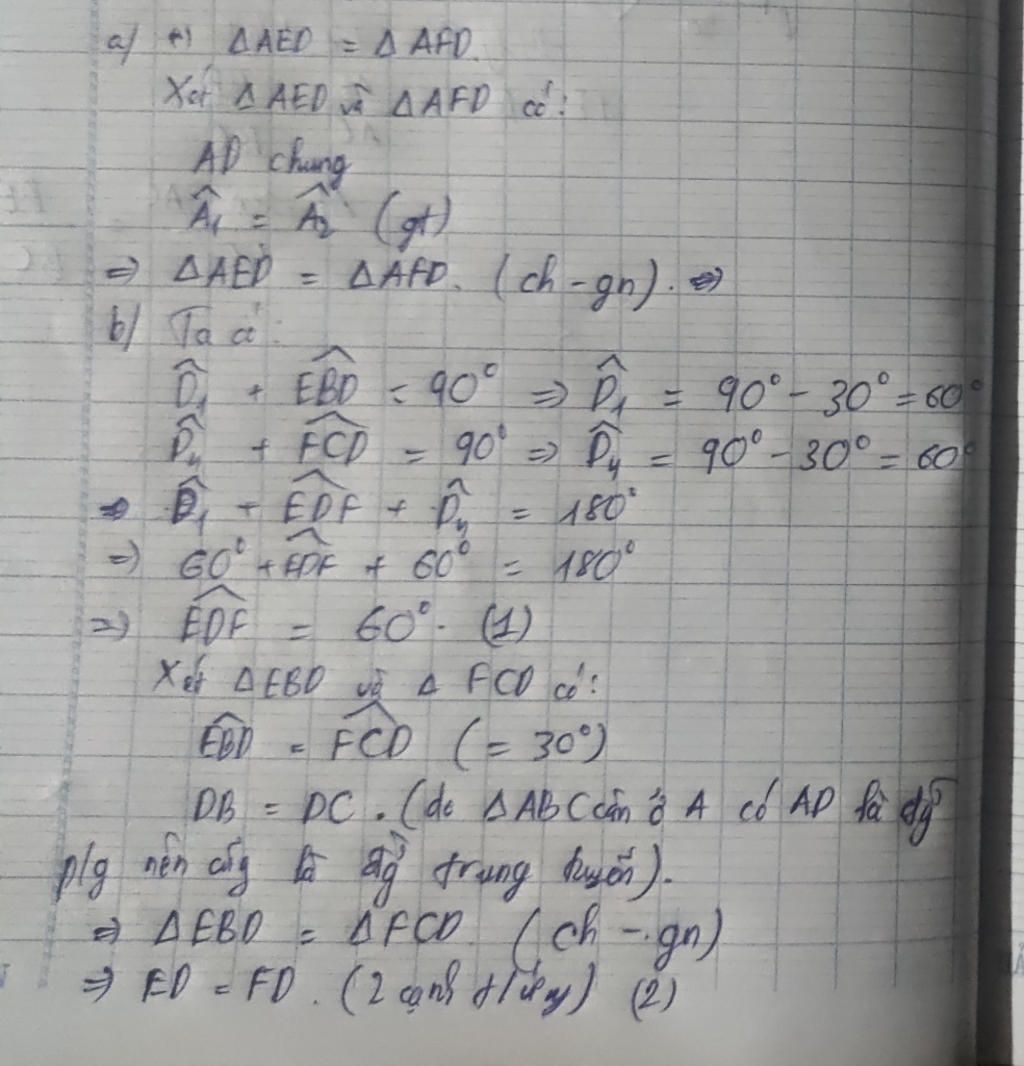 a/ +) ΔAED = ΔAFD.
Xét ΔAED và ΔAFD có:
AD chung
Â₁ = Â₂ (gt)
⇒ ΔAED = ΔAFD. (ch - gn). ⇒
b/ Ta có:
D̂₁ + EBD̂ = 90° ⇒ D̂₁ = 90° - 30° = 60°
D̂₄ + FCD̂ = 90° ⇒ D̂₄ = 90° - 30° = 60°
⇒ D̂₁ + EDF̂ + D̂₄ = 180°
⇒ 60° + EDF̂ + 60° = 180°
⇒ EDF̂ = 60°. (1)
Xét ΔEBD và Δ FCD có:
EBD̂ = FCD̂ (= 30°)
DB = DC. (do ΔABC cân ở A có AD là đg̀
p/g nên cũg là đg̀ trung tuyến).
⇒ ΔEBD = ΔFCD. (ch - gn)
⇒ ED = FD. (2 cạnh t/ứng) (2)